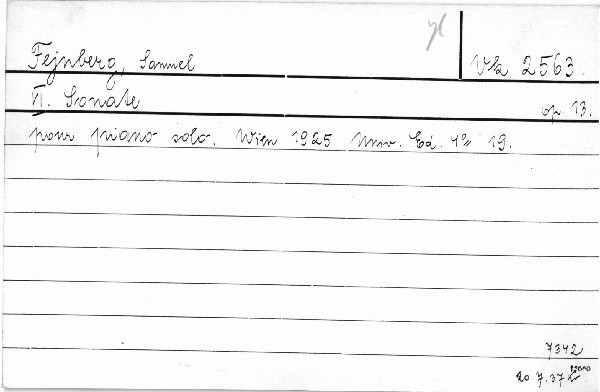 Fejnberg, Samuel Vk 2563.
VI. Sonate op. 13.
pour piano solo. Wien 1925 Univ. Ed. 4° 19.
7342
20.7.37